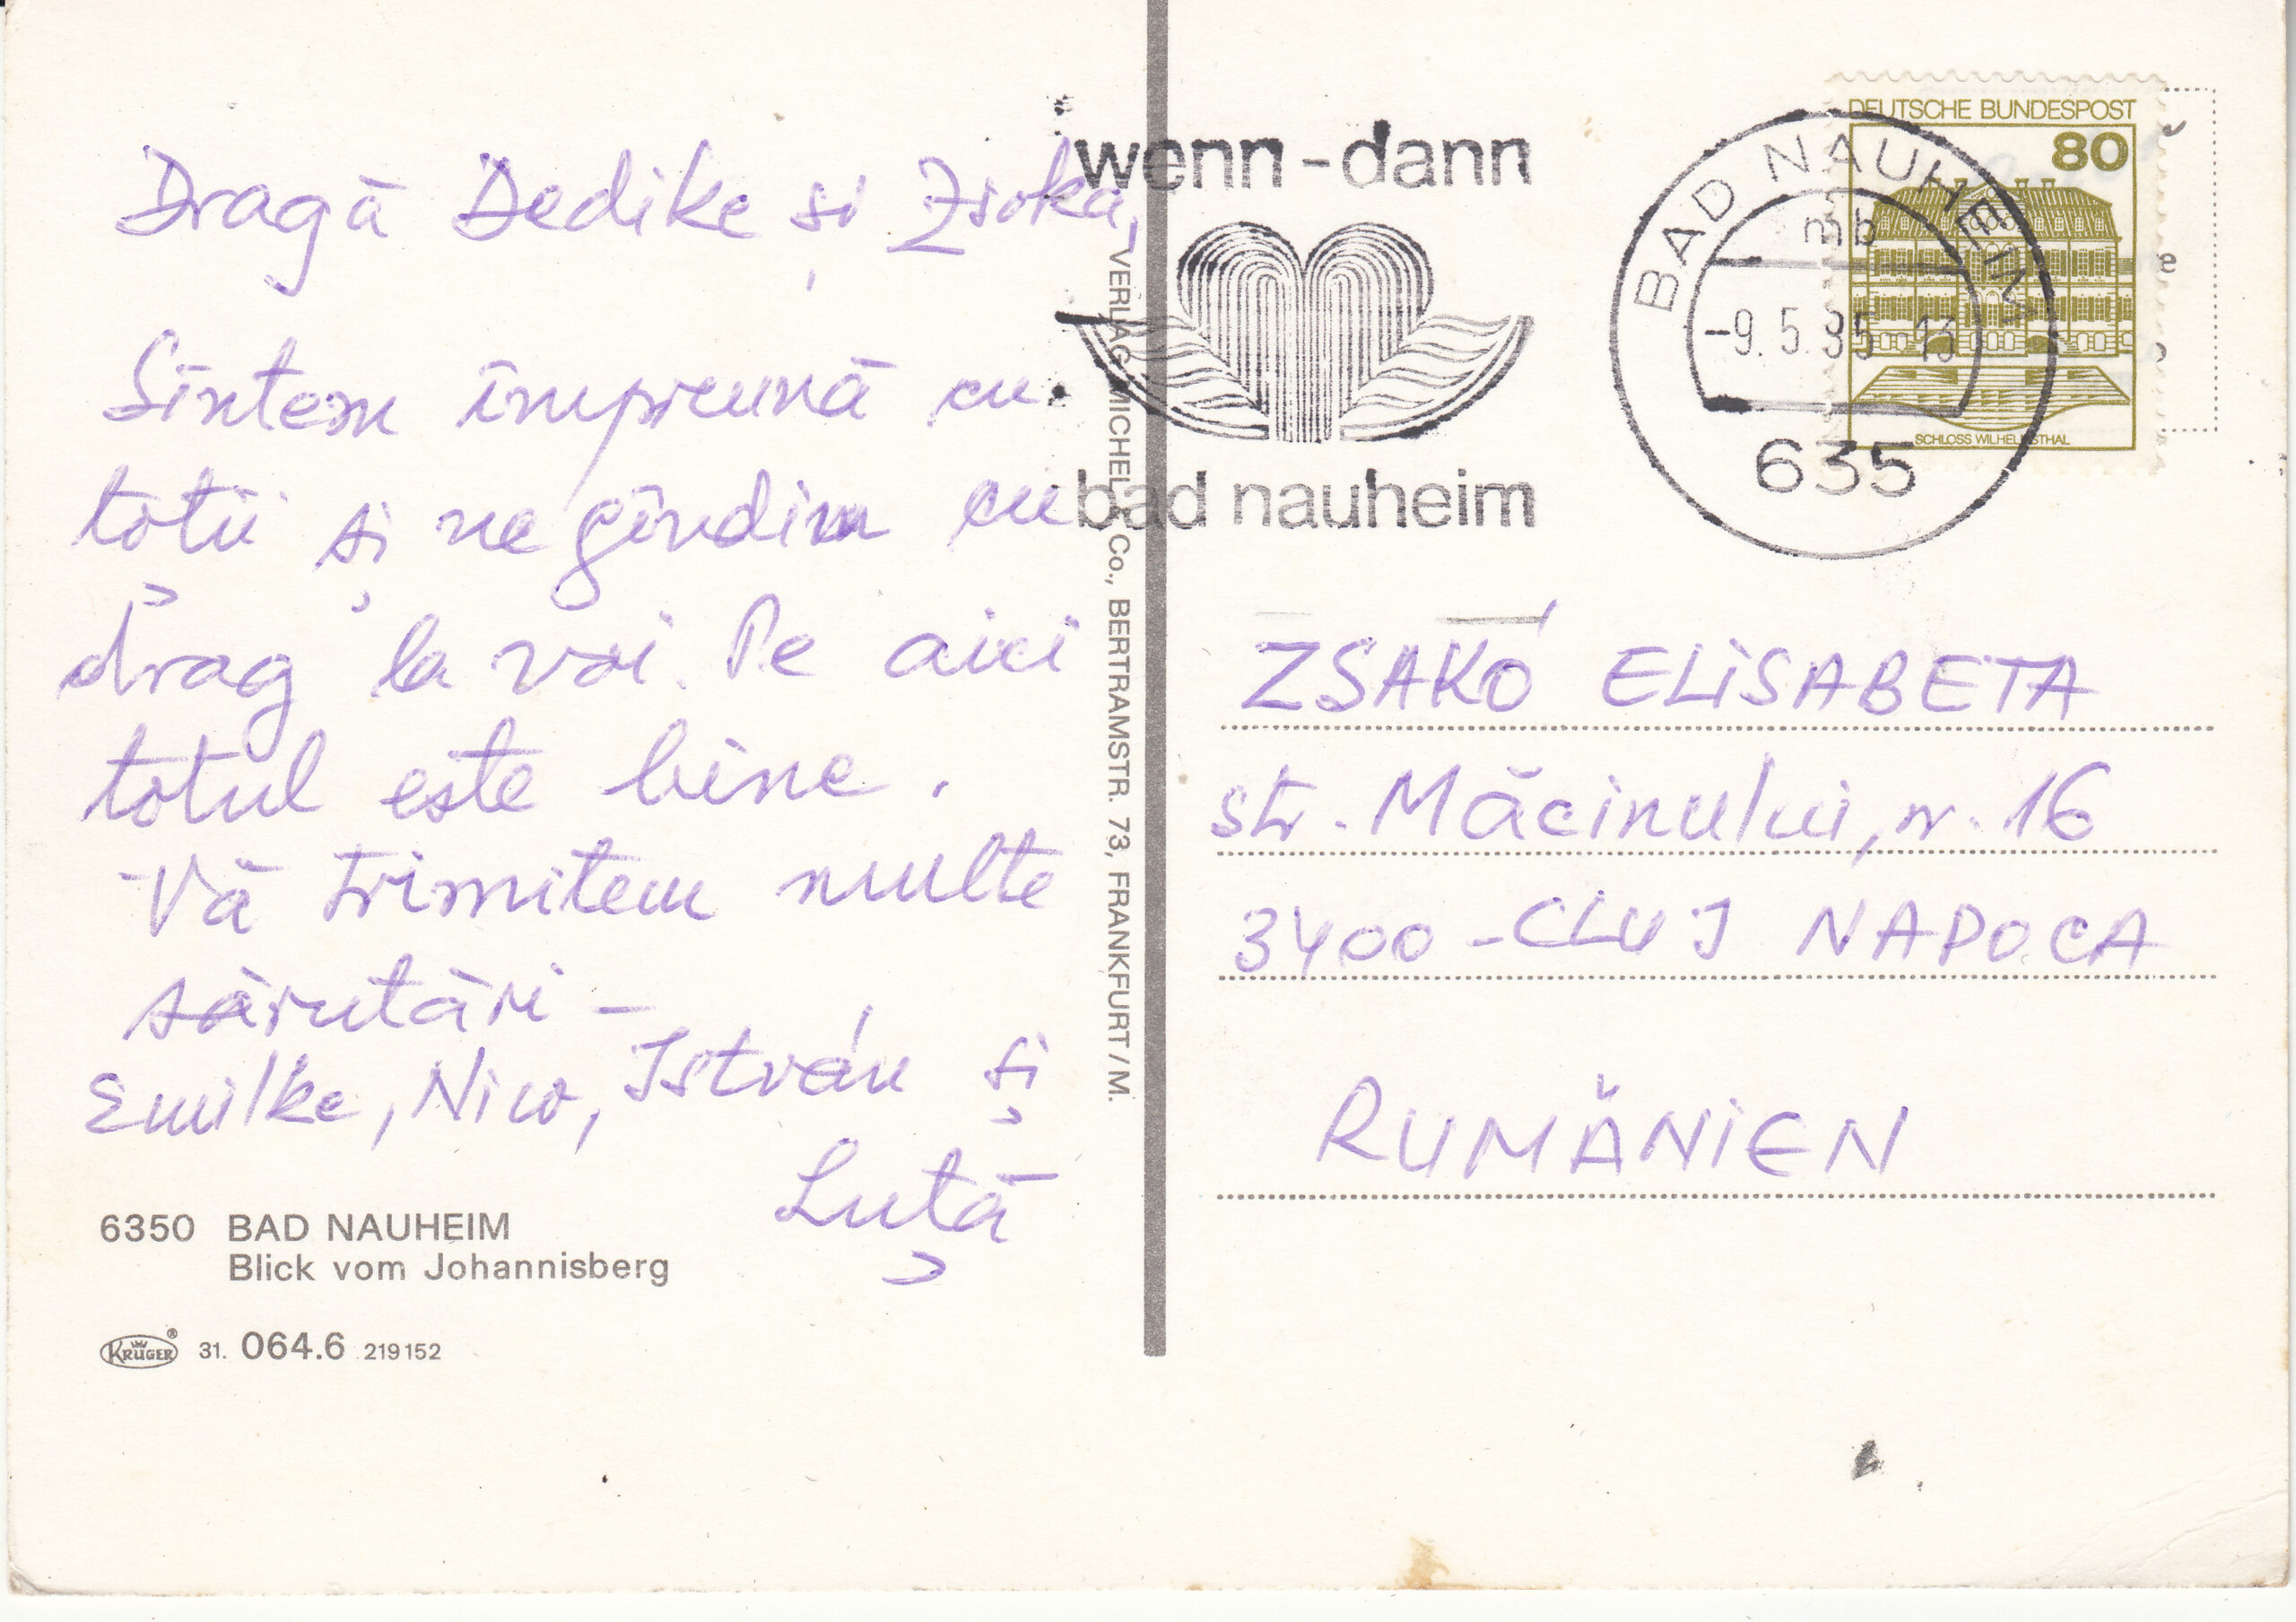 Dragă Dedike și Zsoka,
Sîntem împreună cu
toții și ne gîndim cu
drag la voi. Pe aici
totul este bine.
Vă trimitem multe
sărutări –
Emilke, Nico, István și
Luță
6350 BAD NAUHEIM
Blick vom Johannisberg
KRÜGER® 31. 064.6 219152
VERLAG MICHEL & Co., BERTRAMSTR. 73, FRANKFURT / M.
wenn - dann
bad nauheim
BAD NAUHEIM
mb
-9.5.85-13
635
DEUTSCHE BUNDESPOST
80
SCHLOSS WILHELMSTHAL
ZSAKÓ ELISABETA
str. Măcinului, nr. 16
3400 - CLUJ NAPOCA
RUMĂNIEN